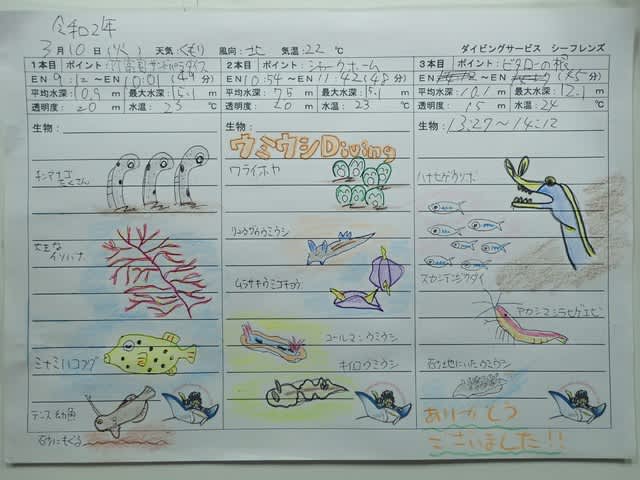 令和2年
3月10日(火) 天気:くもり 風向:北 気温:22℃ ダイビングサービス シーフレンズ
1本目 ポイント:竹富島サンドパラダイス
EN 9:12~EN 10:01(49分)
平均水深:10.9m 最大水深:15.1m
透明度:20m 水温:23℃
生物:
チンアナゴ
たくさん
大きな
イソバナ
ミナミハコフグ
テンス幼魚
砂にもぐる
2本目 ポイント:シャークホーム
EN 10:54~EN 11:42(48分)
平均水深:7.5m 最大水深:15.1m
透明度:20m 水温:23℃
生物:
ウミウシDiving
ワライボヤ
リュウグウウミウシ
ムラサキウミコチョウ
コールマンウミウシ
キイロウミウシ
3本目 ポイント:ビタローの根
EN ~EN (45分)
平均水深:10.1m 最大水深:12.1m
透明度:15m 水温:24℃
生物:13:27~14:12
ハナヒゲウツボ
スカシテンジクダイ
アカシマシラヒゲエビ
砂地にいたウミウシ
ありがとう
ございました!!